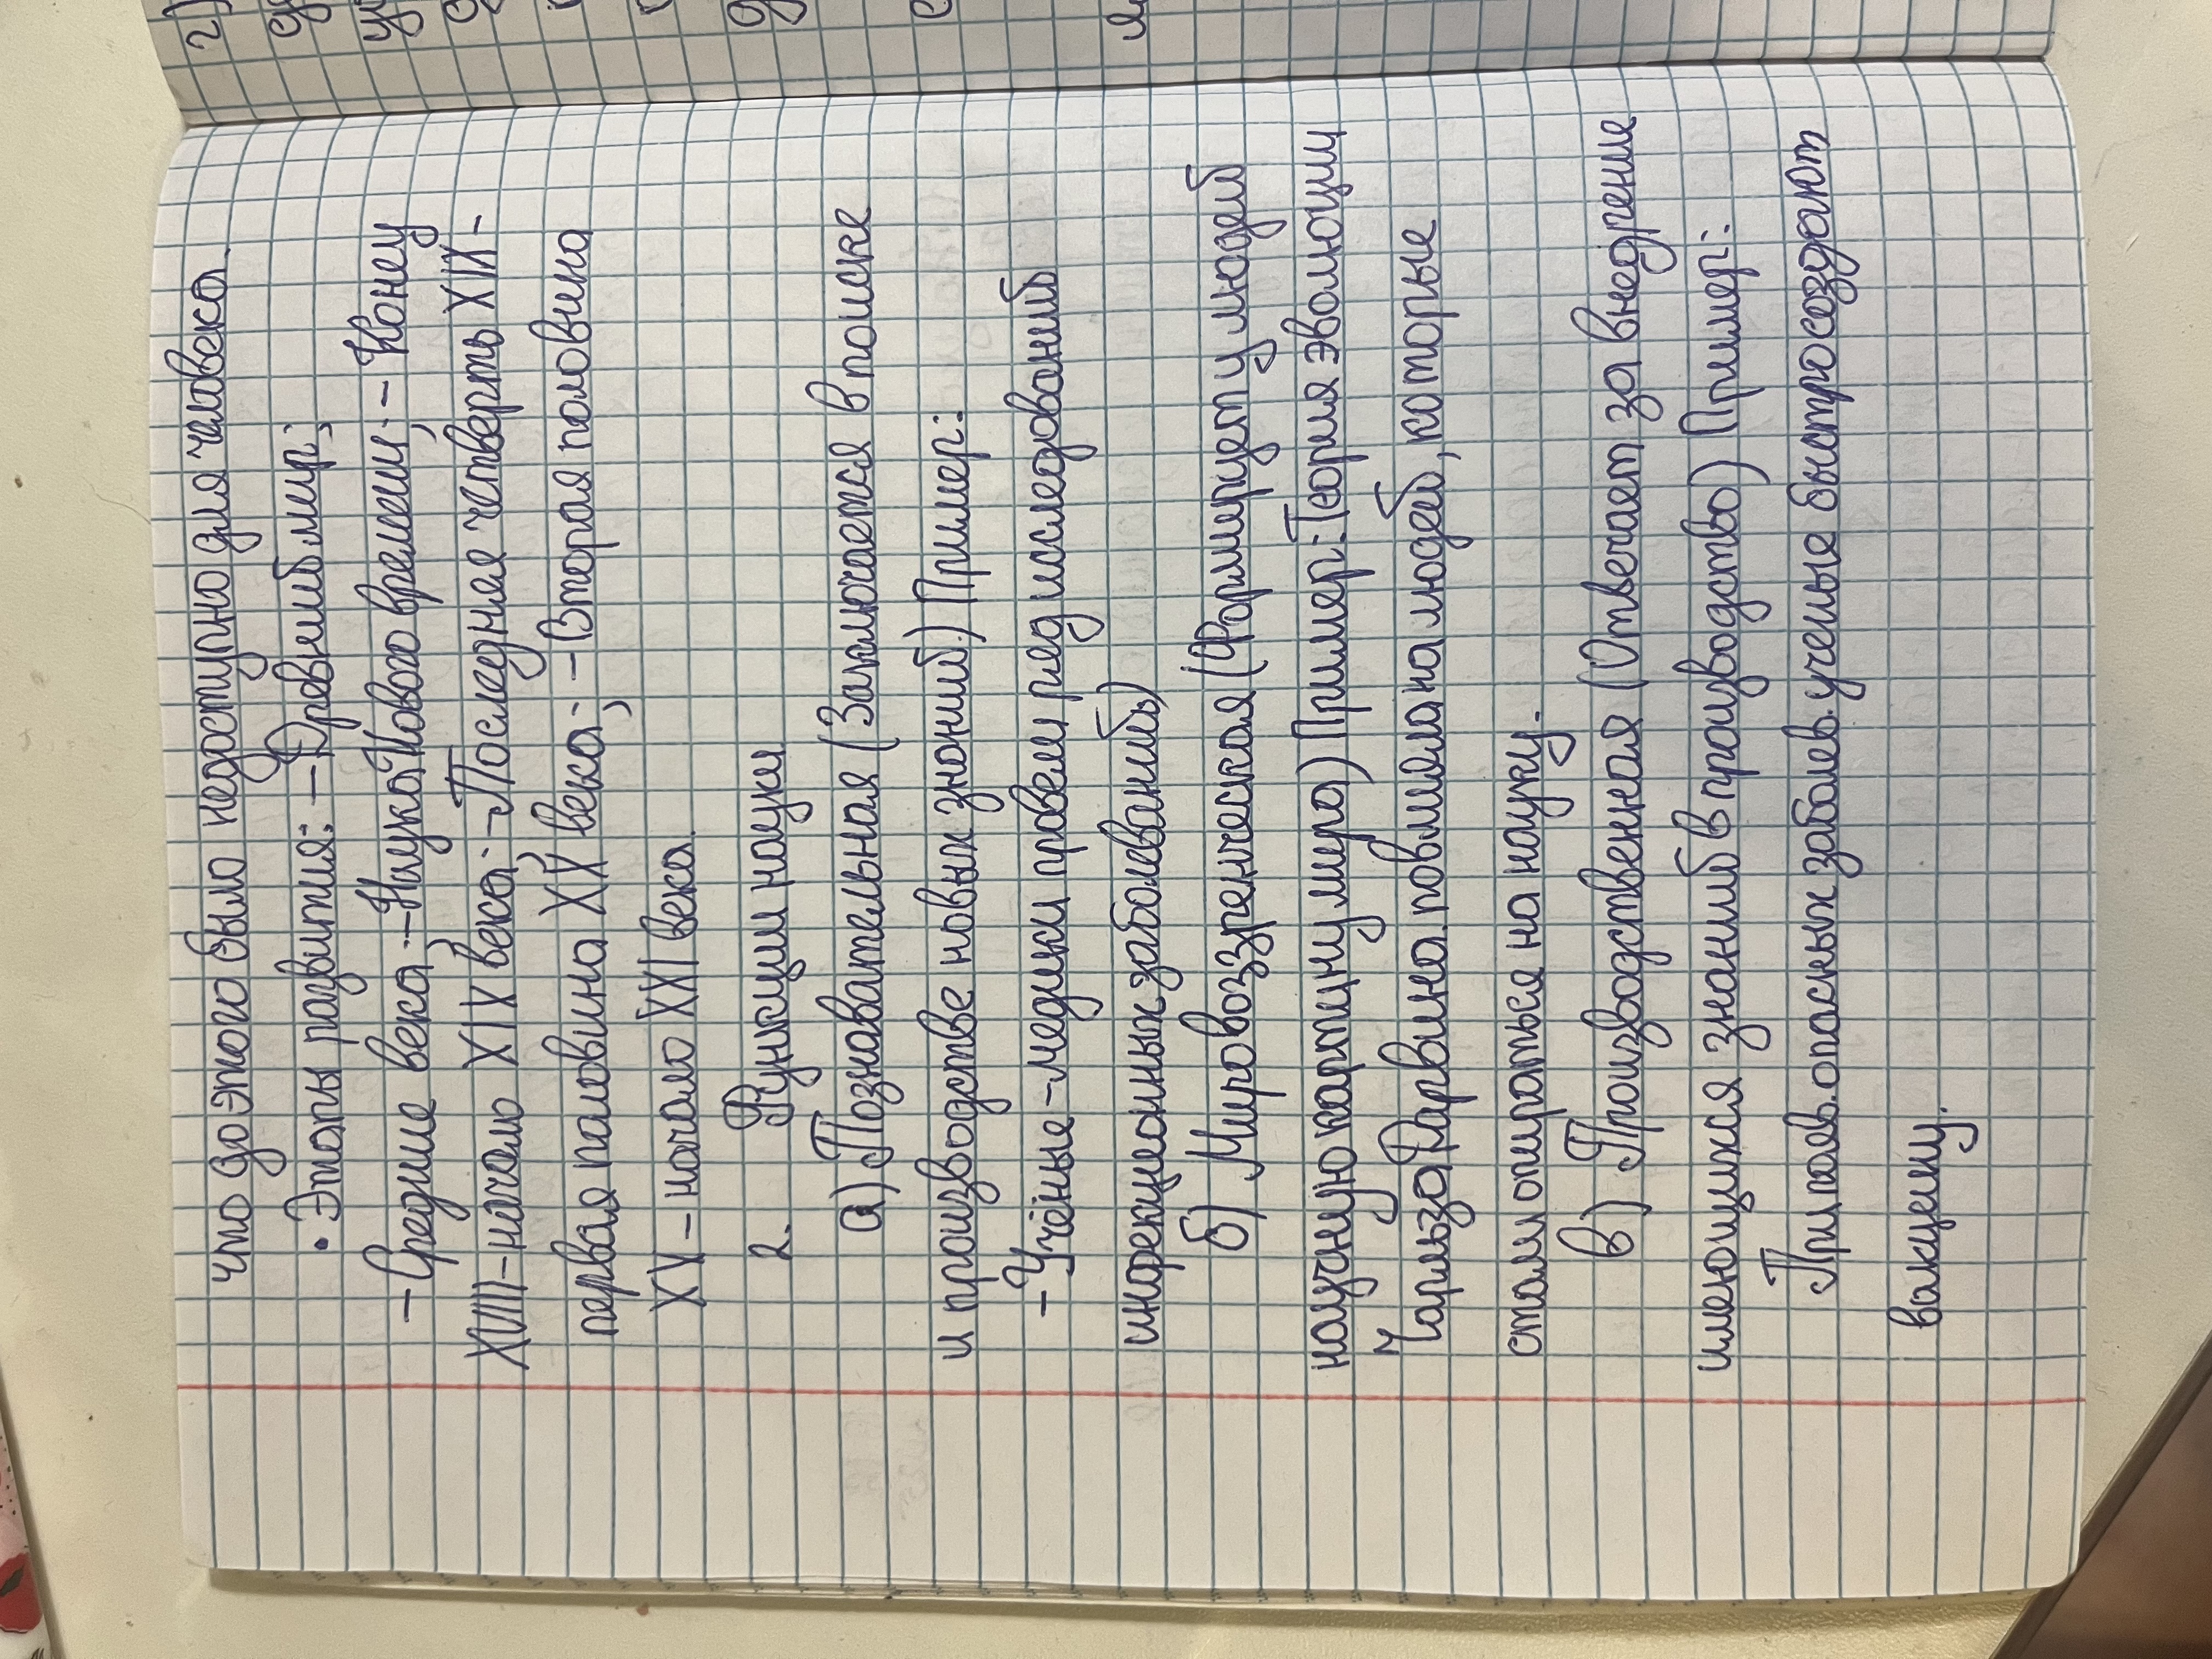 что до этого было недоступно для человека.
• Этапы развития: – Древний мир;
– Средние века; – Наука Нового времени; – Конец
XVIII – начало XIX века; – Последняя четверть XIX –
первая половина XX века; – Вторая половина
XX – начало XXI века.
2. Функции науки
а) Познавательная (Заключается в поиске
и производстве новых знаний) Пример:
– Учёные – медики провели ряд исследований
инфекционных заболеваний)
б) Мировоззренческая (Формирует у людей
научную картину мира) Пример: Теория эволюции
Чарльза Дарвина повлияла на людей, которые
стали опираться на науку.
в) Производственная (Отвечает за внедрение
имеющихся знаний в производство) Пример:
При появ. опасных заболев. ученые быстро создают
вакцину.
2)